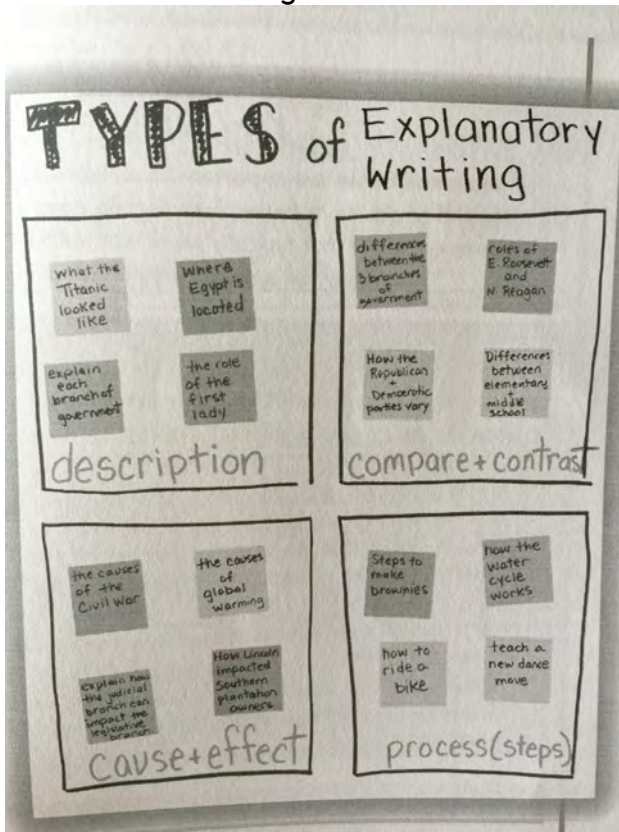 TYPES of Explanatory
Writing
what the
Titanic
looked
like
where
Egypt is
located
explain
each
branch of
government
the role
of the
first
lady
description
differences
between the
3 branches
of
government
roles of
E. Roosevelt
and
N. Reagan
How the
Republican
+
Democratic
parties vary
Differences
between
elementary
+
middle
school
compare + contrast
the causes
of the
Civil War
the causes
of
global
warming
explain how
the judicial
branch can
impact the
legislative
branch
How Lincoln
impacted
Southern
plantation
owners
cause + effect
Steps to
make
brownies
how the
water
cycle
works
how to
ride a
bike
teach a
new dance
move
process (steps)